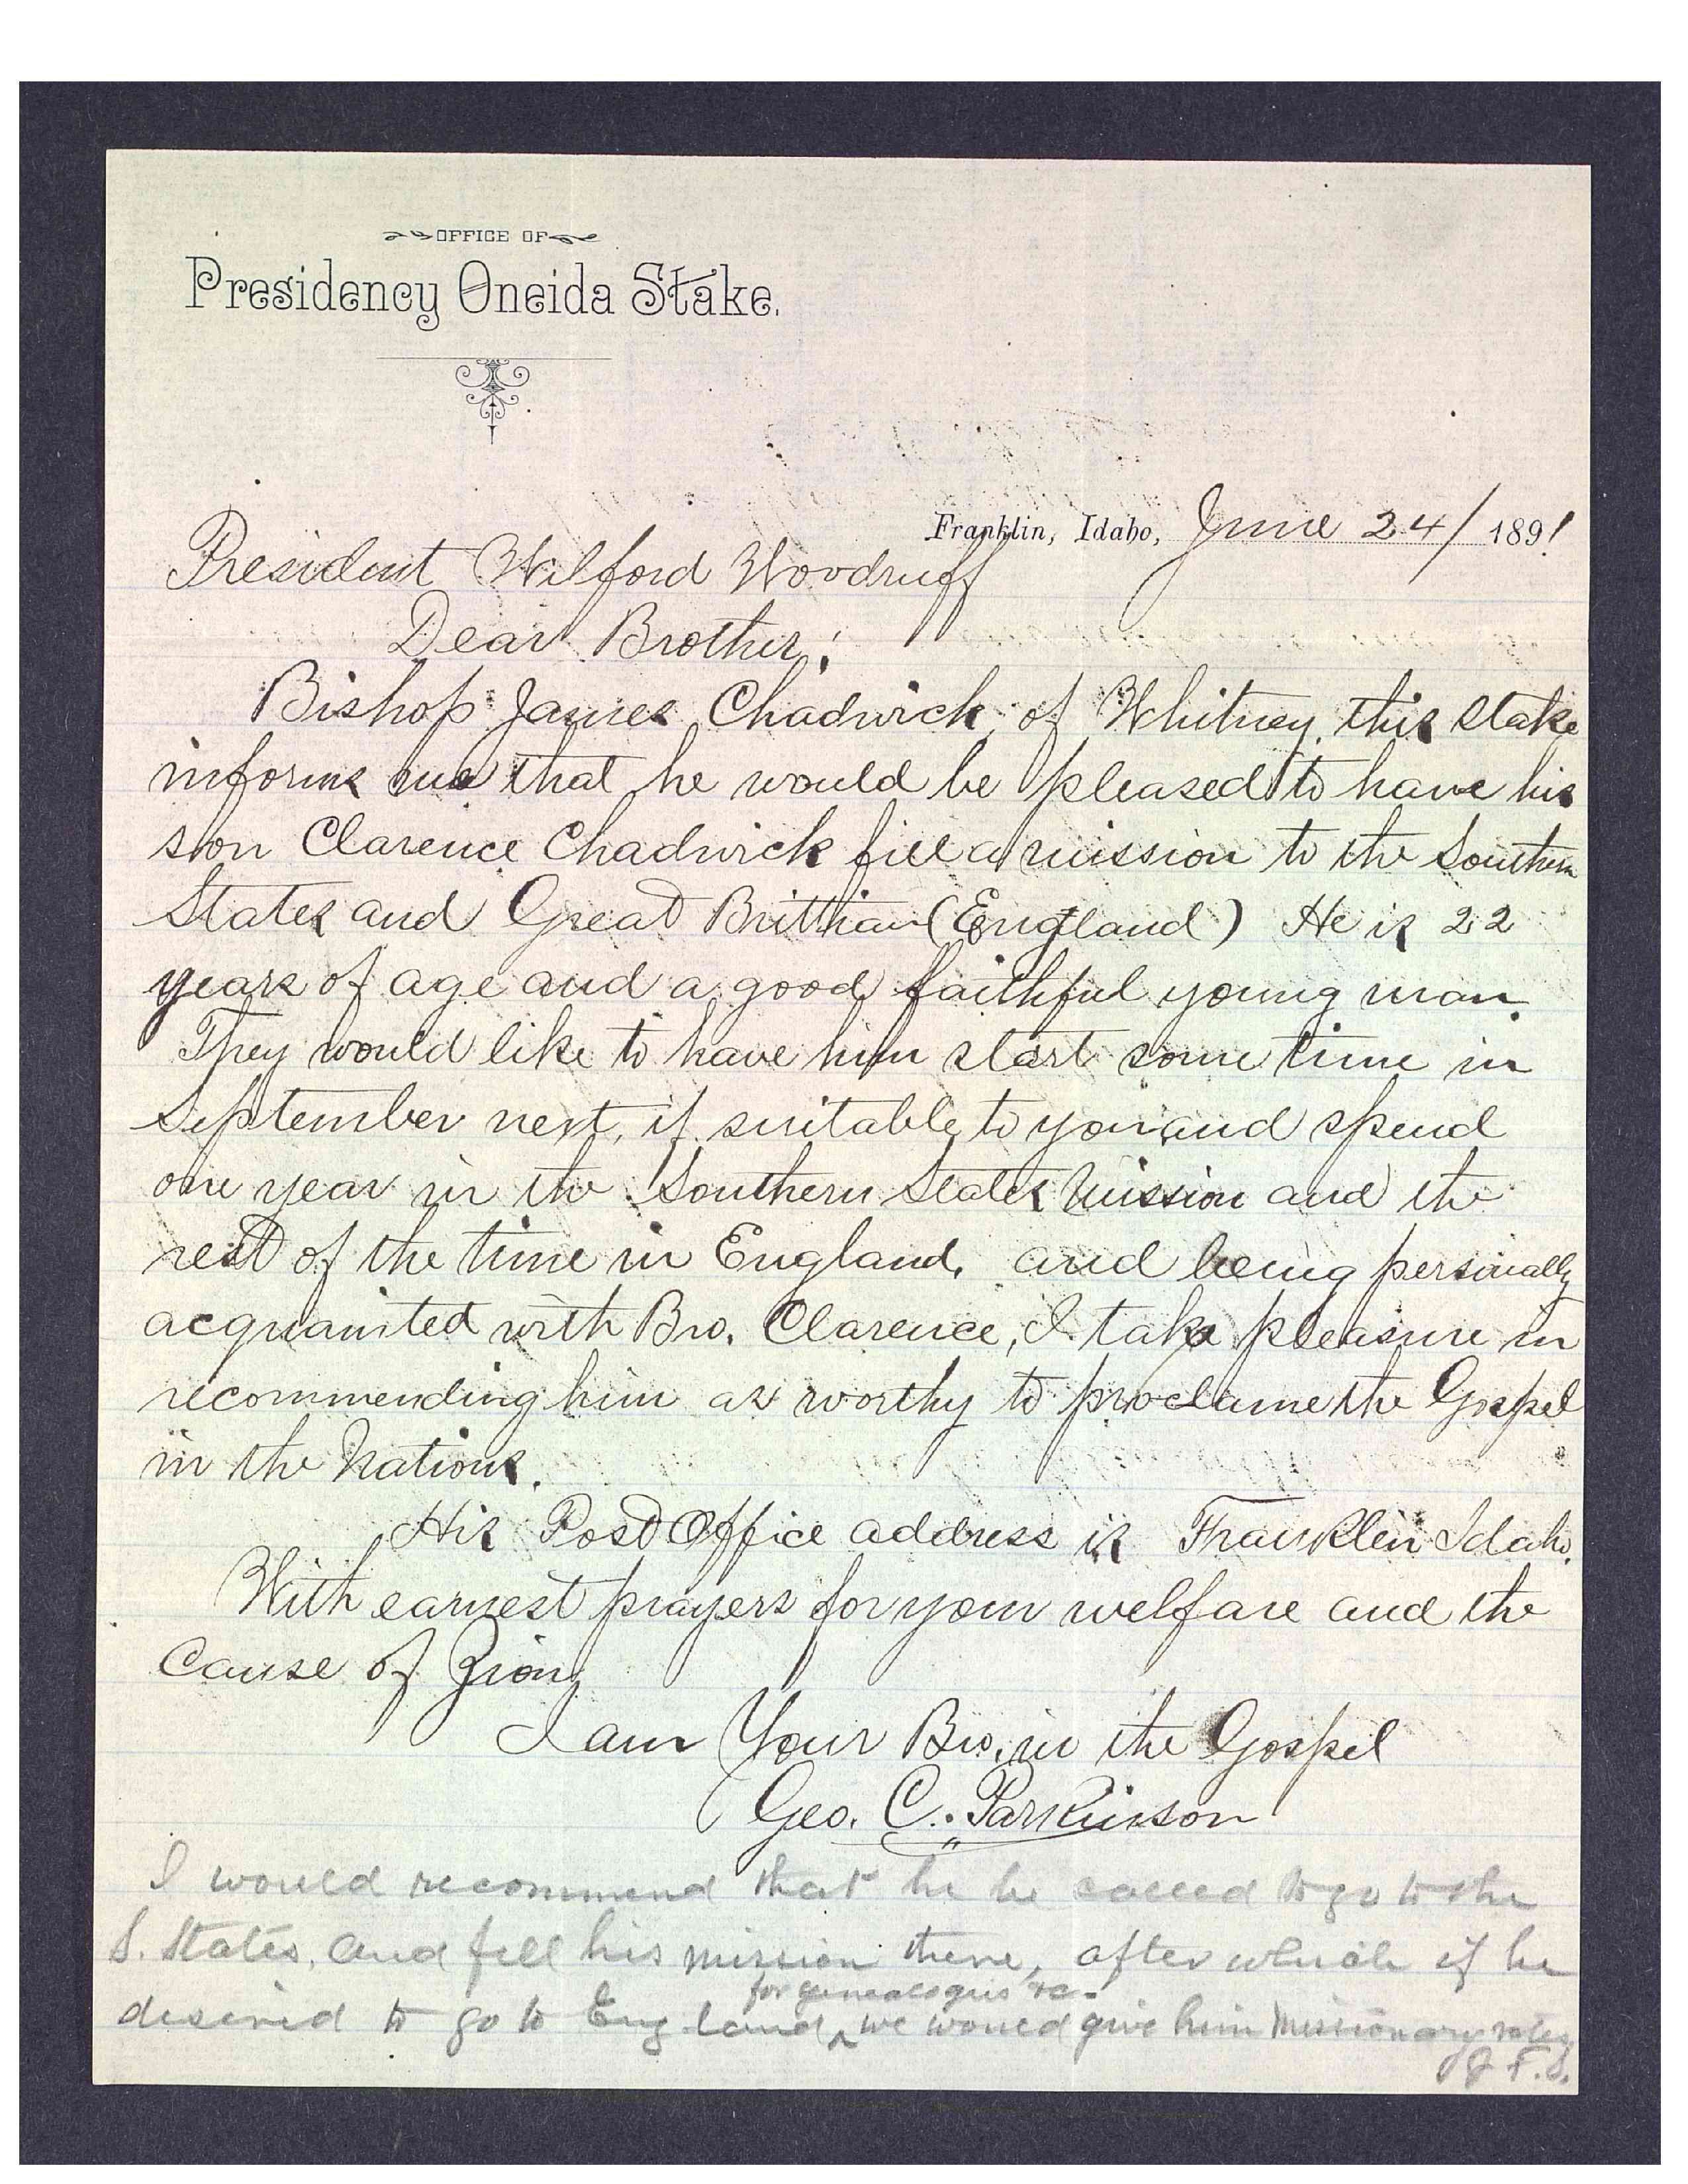 OFFICE OF
Presidency Oneida Stake.
Franklin, Idaho, June 24/ 1891
President Wilford Woodruff
Dear Brother;
Bishop James Chadwick of Whitney, this stake
informs me that he would be pleased to have his
son Clarence Chadwick fill a mission to the Southern
States and Great Brittian (England) He is 22
years of age and a good faithful young man.
They would like to have him start some time in
September next, if suitable to you and spend
one year in the Southern States Mission and the
rest of the time in England, and being personally
acquainted with Bro. Clarence, I take pleasure in
recommending him as worthy to proclame the Gospel
in the Nations.
His Post Office address is Franklin Idaho.
With earnest prayers for your welfare and the
Cause of Zion,
I am Your Bro. in the Gospel
Geo. C. Parkinson
I would recommend that he be called to go to the
S. States, and fill his mission there, after which if he
for genealogies &c-
desired to go to England, ^ we would give him missionary rates
J. F. S.